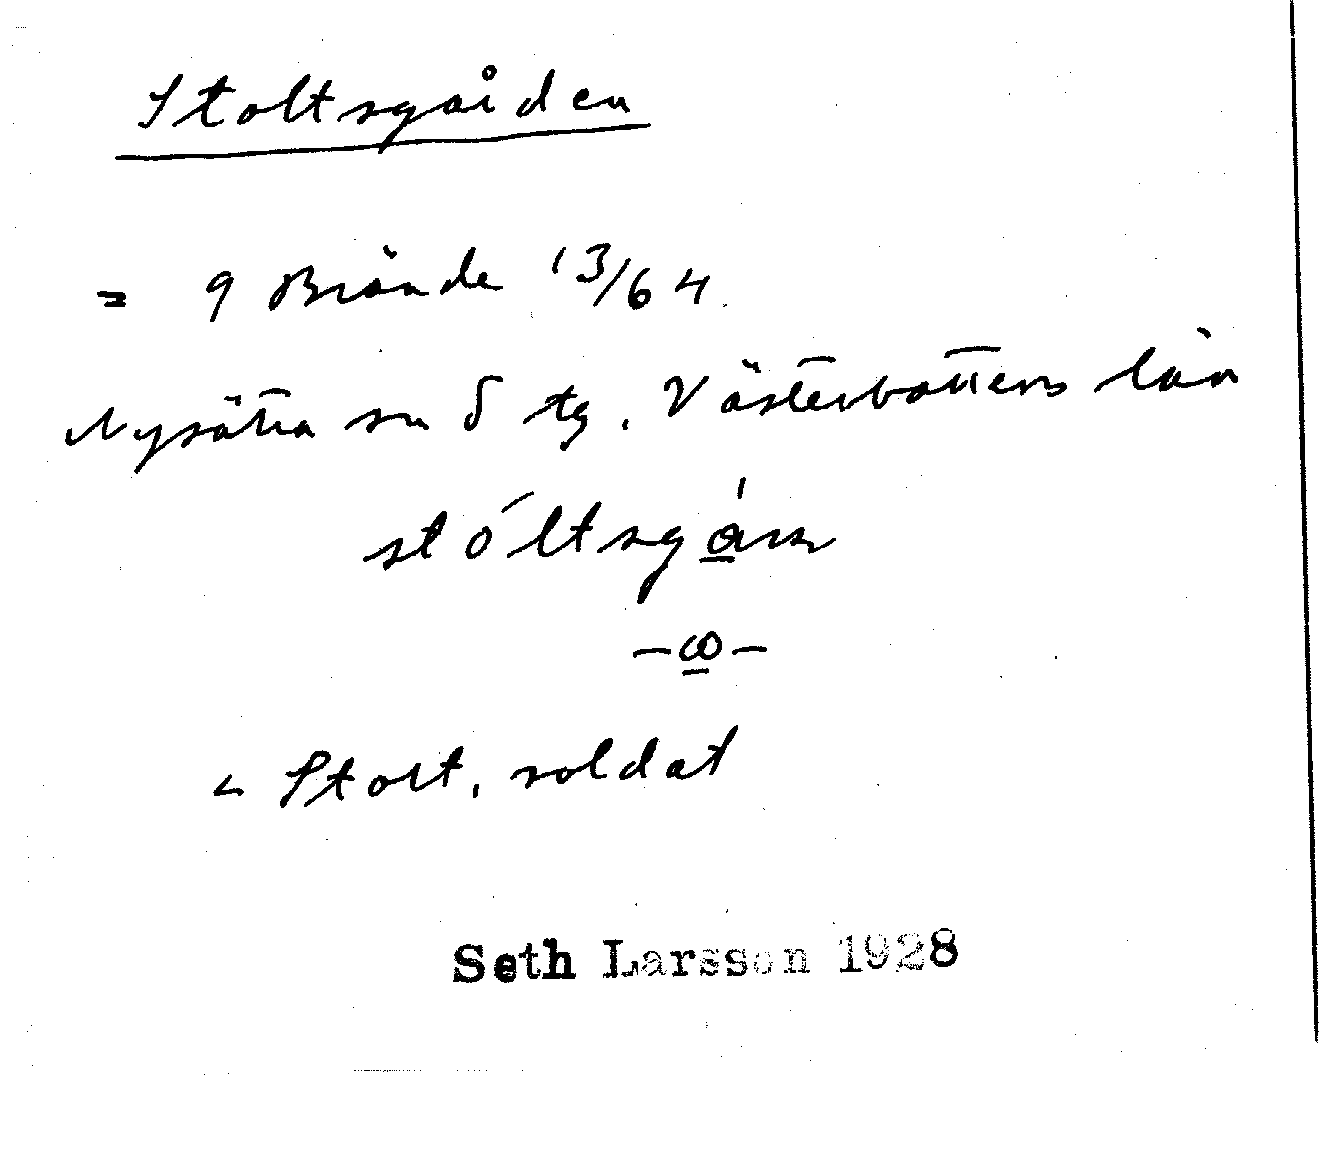 Stoltsgården
= g Brände 13/64
Nysätra sn S tg. Västerbottens län
stóltsgán
-ω-
< Stolt, soldat
Seth Larsson 1928